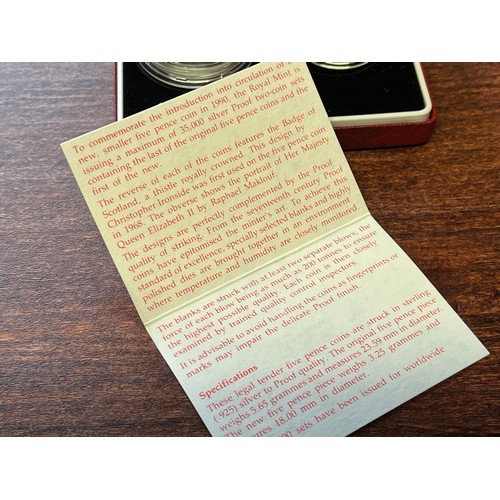 To commemorate the introduction into circulation of a
new, smaller five pence coin in 1990, the Royal Mint is
issuing a maximum of 35,000 silver Proof two-coin sets
containing the last of the original five pence coins and the
first of the new.
The reverse of each of the coins features the Badge of
Scotland, a thistle royally crowned. This design by
Christopher Ironside was first used on the five pence coin
in 1968. The obverse shows the Portrait of Her Majesty
Queen Elizabeth II by Raphael Maklouf.
The designs are perfectly complemented by the Proof
quality of striking. From the seventeenth century Proof
coins have epitomised the minter's art. To achieve this
standard of excellence, specially selected blanks and highly
polished dies are brought together in an environment
where temperature and humidity are closely monitored.
The blanks are struck with at least two separate blows, the
force of each blow being as much as 200 tonnes, to ensure
the highest possible quality. Each coin is then closely
examined by trained quality control inspectors.
It is advisable to avoid handling the coins as fingerprints or
marks may impair the delicate Proof finish.
Specifications
These legal tender five pence coins are struck in sterling
(.925) silver to Proof quality. The original five pence piece
weighs 5.65 grammes and measures 23.59 mm in diameter.
The new five pence piece weighs 3.25 grammes and
ures 18.00 mm in diameter.
00 sets have been issued for worldwide